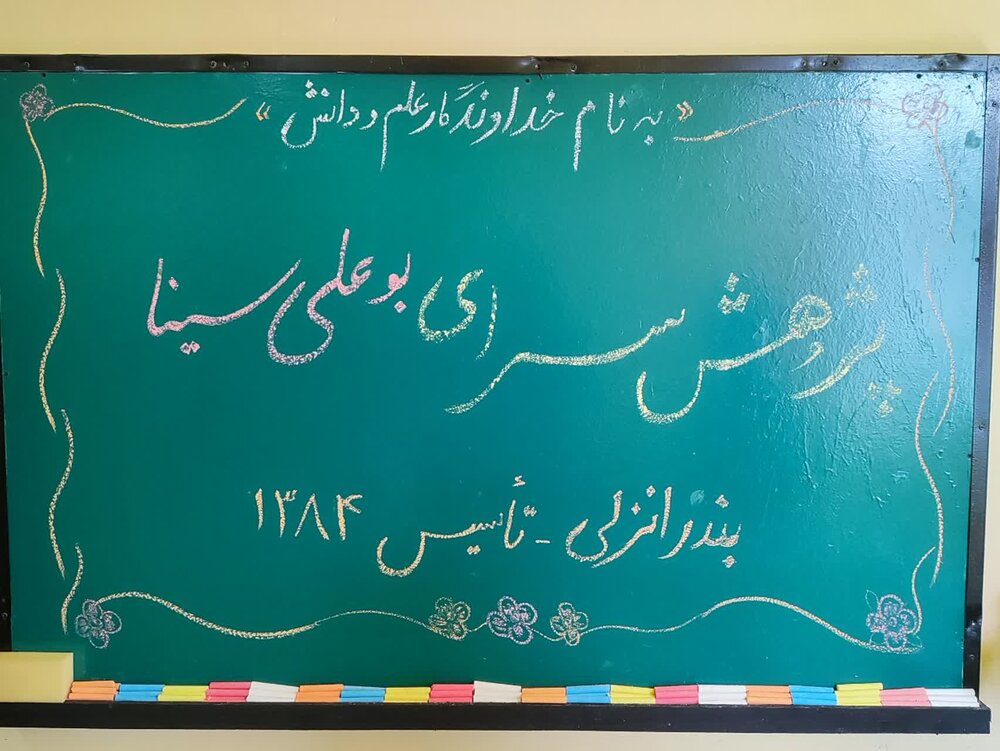 « به نام خداوندگار علم و دانش »
پژوهش سرای بوعلی سینا
بندر انزلی - تأسیس ۱۳۸۴